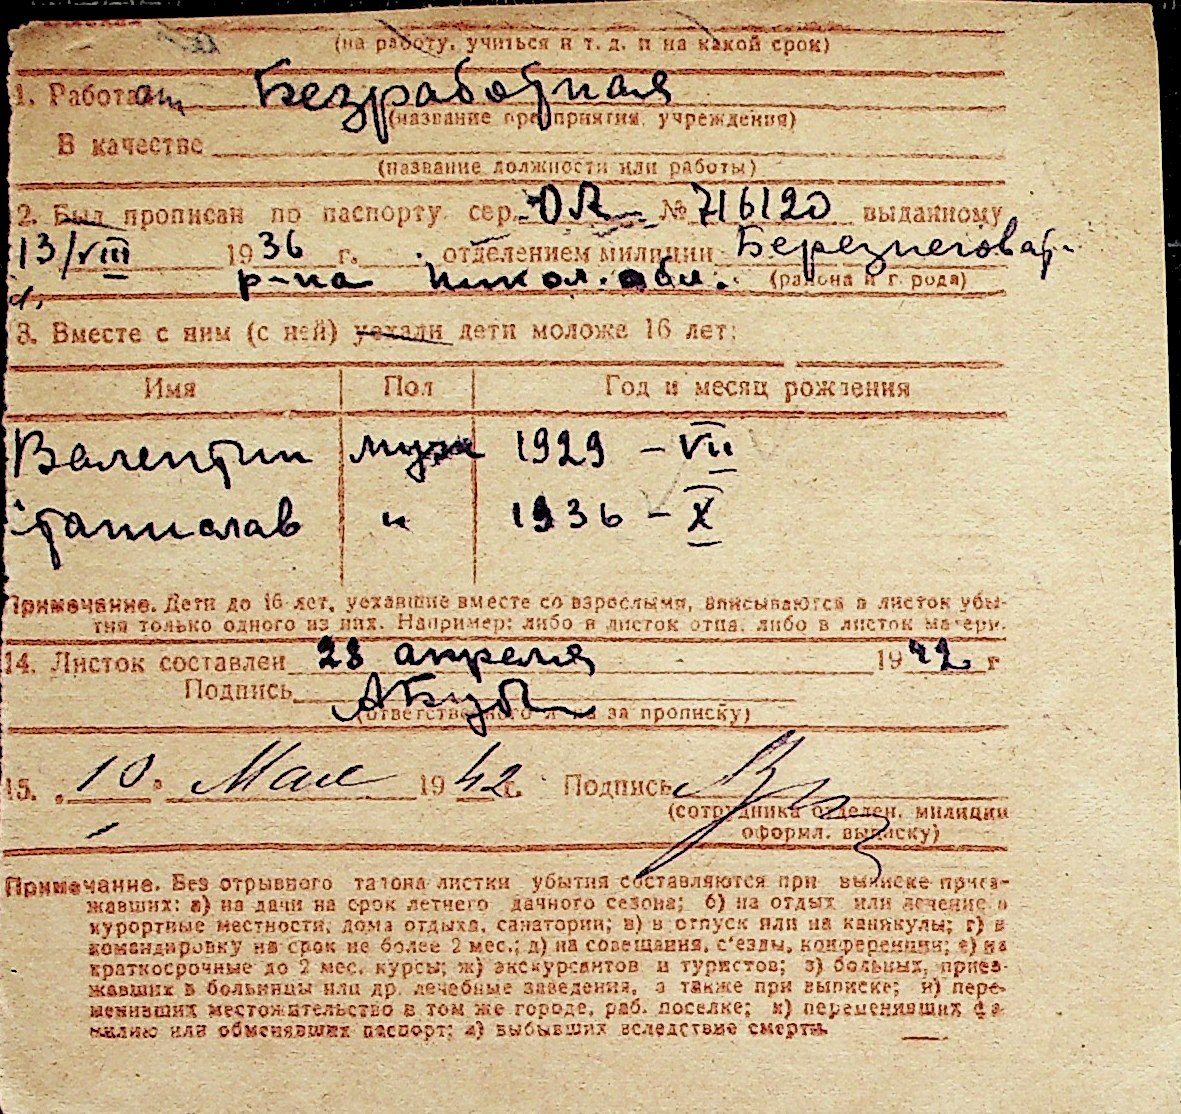 (на работу, учиться и т. д. и на какой срок)
1. Работа Безработная
(название предприятия, учреждения)
В качестве
(название должности или работы)
2. Был прописан по паспорту сер. № 716120 выданному
13/VIII 1936 г. отделением милиции Березнеговат.
р-на Никол. обл. (района и г. рода)
3. Вместе с ним (с ней) уехали дети моложе 16 лет:
Имя Пол Год и месяц рождения
Валентин муж 1929 – VII
Станислав " 1936 – X
Примечание. Дети до 16 лет, уехавшие вместе со взрослыми, вписываются в листок убы-
тия только одного из них. Например: либо в листок отца, либо в листок матери.
14. Листок составлен 28 апреля 1942 г
Подпись
(ответственного лица за прописку)
15. „10" Мая 1942 г. Подпись
(сотрудника отделен. милиции
оформл. выписку)
Примечание. Без отрывного талона листки убытия составляются при выписке приез-
жавших: а) на дачи на срок летнего дачного сезона; б) на отдых или лечение в
курортные местности, дома отдыха, санатории; в) в отпуск или на каникулы; г) в
командировку на срок не более 2 мес.; д) на совещания, с'езды, конференции; е) на
краткосрочные до 2 мес. курсы; ж) экскурсантов и туристов; з) больных, приез-
жавших в больницы или др. лечебные заведения, а также при выписке; и) пере-
менивших местожительство в том же городе, раб. поселке; к) переменивших фа-
милию или обменявших паспорт; л) выбывших вследствие смерти.